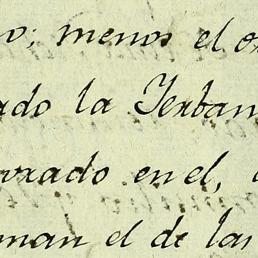 o; menos el o
ado la Yerban
urado en el,
man el de las